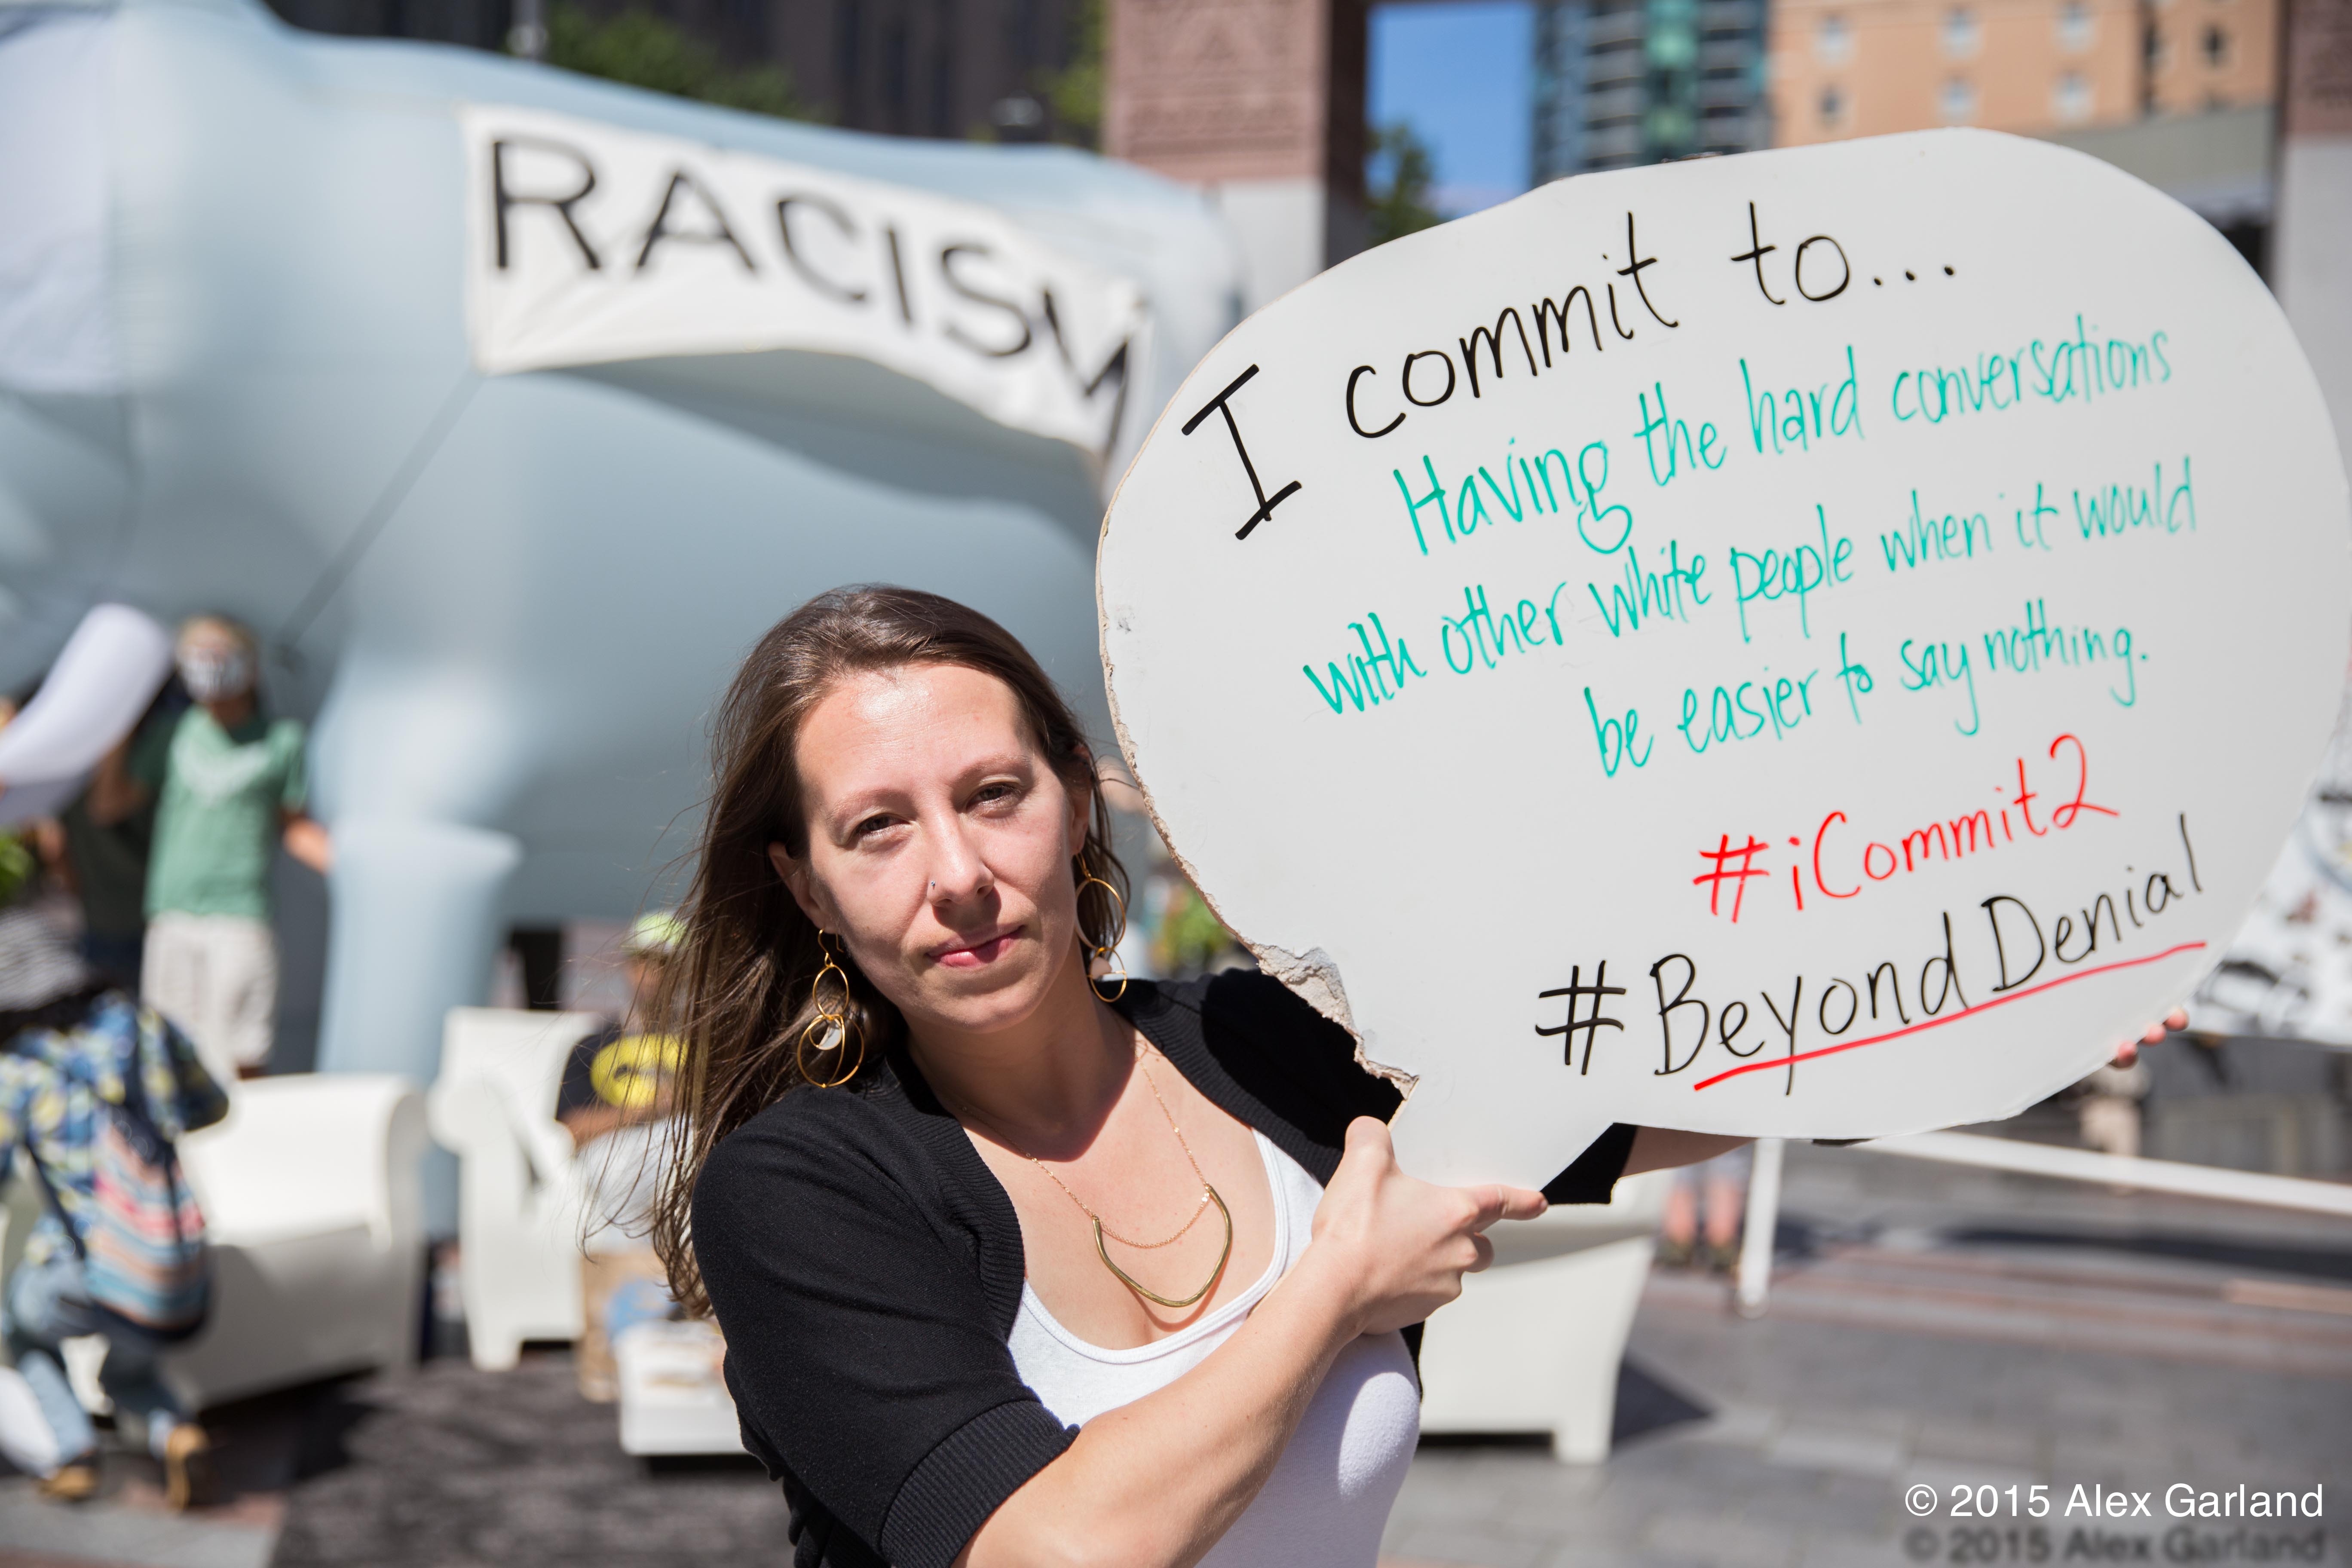 RACISM
I commit to...
Having the hard conversations
with other white people when it would
be easier to say nothing.
#iCommit2
#BeyondDenial
© 2015 Alex Garland